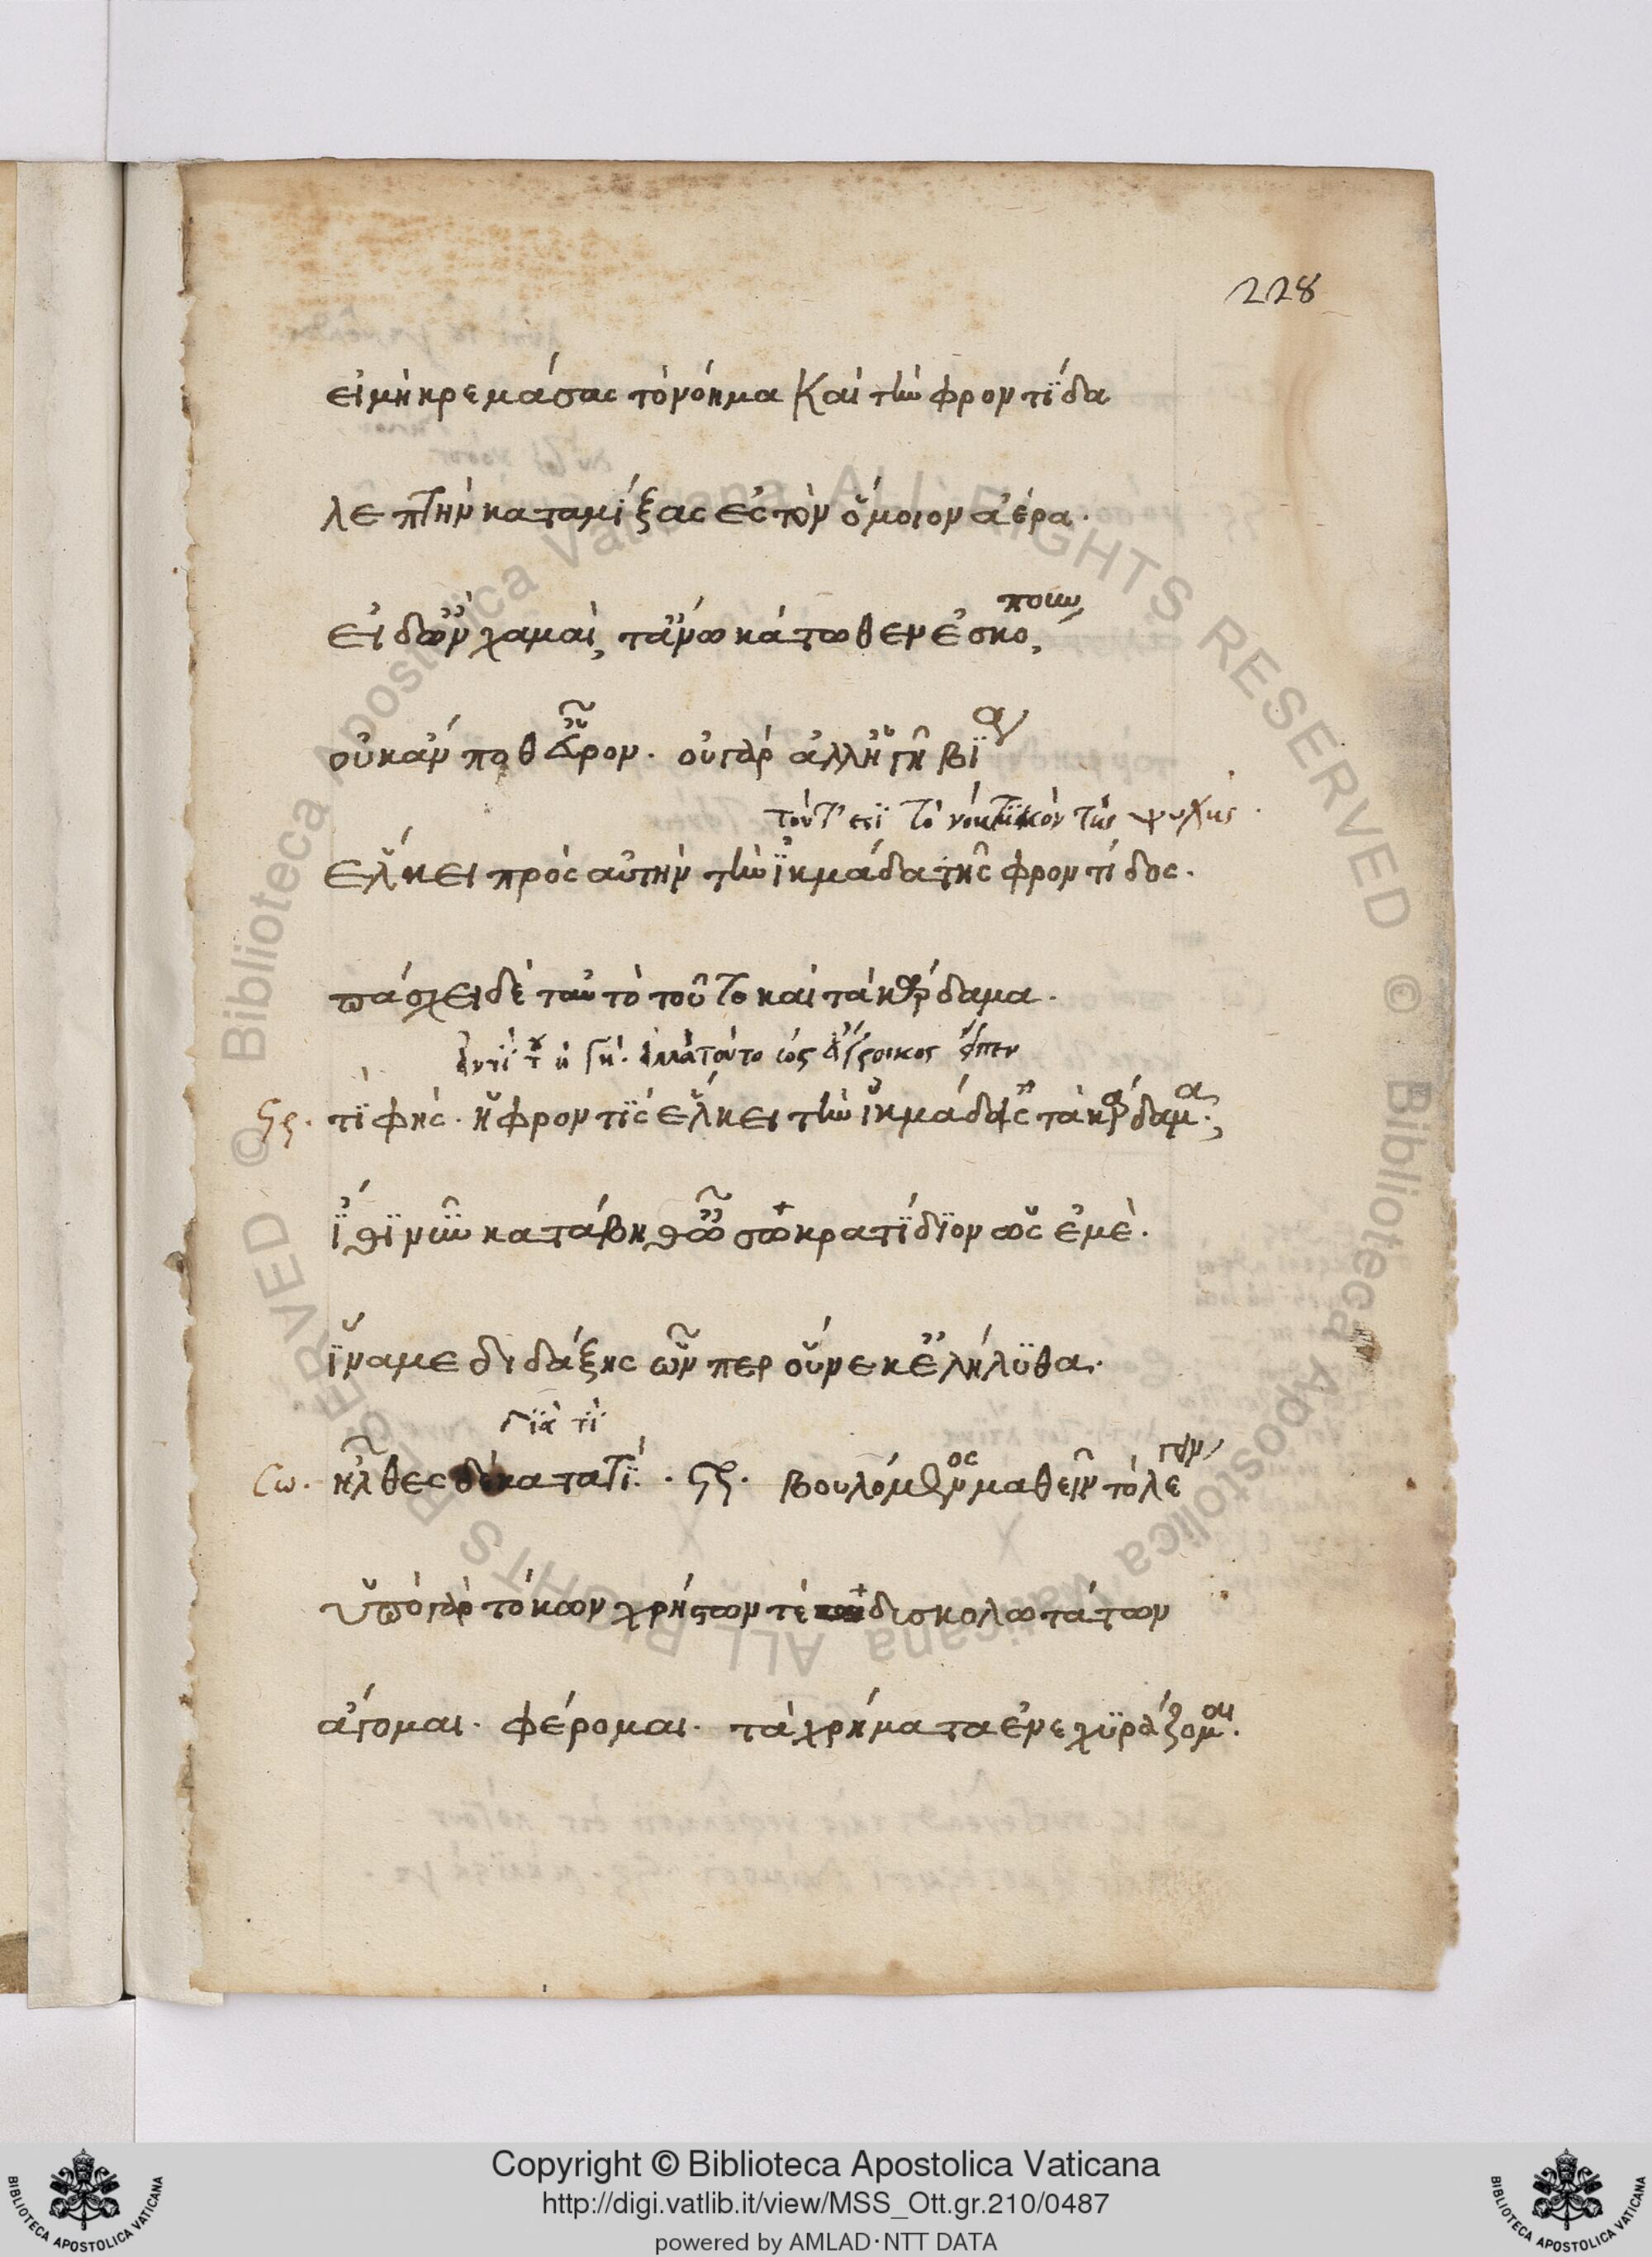 228
εἰ μὴ κρεμάσας τὸ νόημα Καὶ τὴν φροντΐδα
λεπτὴν καταμίξας ἐς τὸν ὅμοιον ἀέρα·
ποιω
εἰ δ' ὢν χαμαὶ, τἄνω κάτωθεν ἐσκο,
οὐκ ἄν ποθ' εὗρον· οὐ γὰρ ἀλλ' ἡ γῆ βΐᾳ
τοῦτ' ἐστὶ τὸ νοητικὸν τῆς ψυχῆς·
ἕλκει πρὸς αὑτὴν τὴν ἰκμάδα τῆς φροντίδος.
πάσχει δὲ ταὐτὸ τοῦτο καὶ τὰ κάρδαμα.
ἀντὶ τοῦ ἡ γῆ. ἀλλὰ τοῦτο ὡς ἄγροικος εἶπεν
Στ. τΐ φής· ἡ φροντῒς ἕλκει τὴν ἰκμάδ' εἰς τὰ κάρδαμα;
ἴθϊ νῦν κατάβηθ' ὦ σωκρατΐδϊον ὡς ἐμὲ.
ἵνα με διδάξης ὧν περ οὕνεκ' ἐλήλϋθα.
δϊὰ τῒ
Σω. ἦλθες δὲ κατὰ τΐ. Στ. βουλόμενος μαθεῖν τὸ λέγειν
ὑπὸ γὰρ τόκων χρήστων τὲ δισκολωτάτων
ἄγομαι. φέρομαι. τὰ χρήματα ἐνεχϋράζομαι.
Copyright © Biblioteca Apostolica Vaticana
http://digi.vatlib.it/view/MSS_Ott.gr.210/0487
powered by AMLAD·NTT DATA